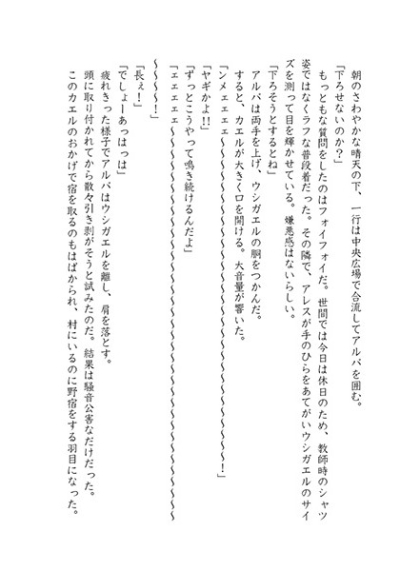 朝のさわやかな晴天の下、一行は中央広場で合流してアルバを囲む。
「下ろせないのか？」
もっともな質問をしたのはフォイフォイだ。世間では今日は休日のため、教師時のシャツ
姿ではなくラフな普段着だった。その隣で、アレスが手のひらをあてがいウシガエルのサイ
ズを測って目を輝かせている。嫌悪感はないらしい。
「下ろそうとするとね」
アルバは両手を上げ、ウシガエルの胴をつかんだ。
すると、カエルが大きく口を開ける。大音量が響いた。
「ンメェェェェ～～～～～～～～～～～～～～～～～～～～！」
「ヤギかよ!!」
「ずっとこうやって鳴き続けるんだよ」
「ェェェェェ～～～～～～～～～～～～～～～～～～～～～～～～
～～～～！」
「長ぇ！」
「でしょーあっはっは」
疲れきった様子でアルバはウシガエルを離し、肩を落とす。
頭に取り付かれてから散々引き剥がそうと試みたのだ。結果は騒音公害なだけだった。
このカエルのおかげで宿を取るのもはばかられ、村にいるのに野宿をする羽目になった。